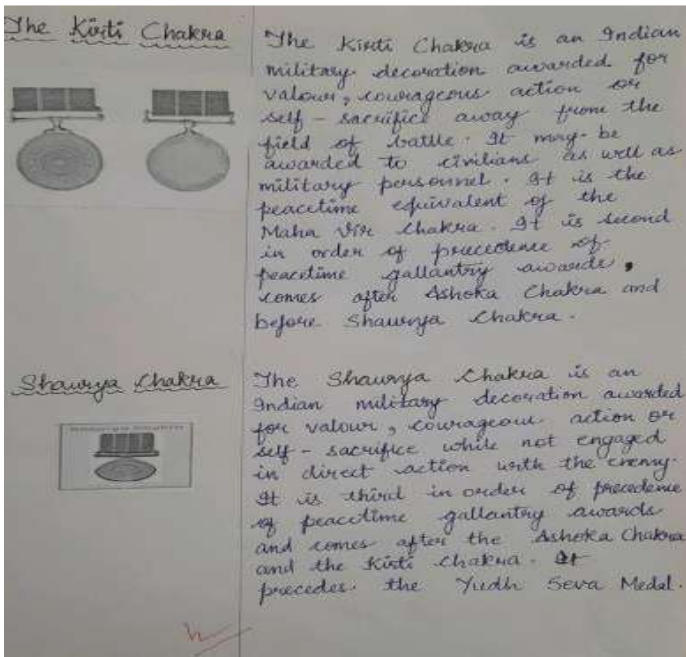 The Kirti Chakra
The Kirti Chakra is an Indian
military decoration awarded for
valour, courageous action or
self - sacrifice away from the
field of battle. It may be
awarded to civilians as well as
military personnel. It is the
peacetime equivalent of the
Maha Vir Chakra. It is second
in order of precedence of
peacetime gallantry awards,
comes after Ashoka Chakra and
before Shaurya Chakra.
Shaurya Chakra
The Shaurya Chakra is an
Indian military decoration awarded
for valour, courageous action or
self - sacrifice while not engaged
in direct action with the enemy.
It is third in order of precedence
of peacetime gallantry awards
and comes after the Ashoka Chakra
and the Kirti Chakra. It
precedes the Yudh Seva Medal.